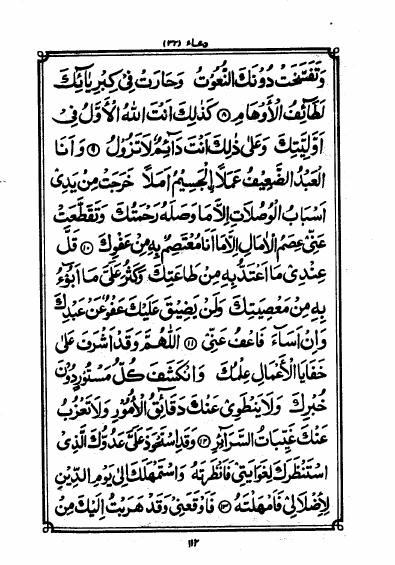 دعاء (٣٢)
وَتَفَسَّخَتْ دُونَكَ النُّعُوْتُ وَحَارَتْ فِيْ كِبْرِيَائِكَ
لَطَائِفُ الْأَوْهَامِ ⑧ كَذٰلِكَ اَنْتَ اللهُ الْأَوَّلُ فِيْ
اَوَّلِيَّتِكَ وَعَلٰى ذٰلِكَ اَنْتَ دَائِمٌ لَا تَزُوْلُ ⑨ وَاَنَا
الْعَبْدُ الضَّعِيْفُ عَمَلًا الْجَسِيْمُ اَمَلًا خَرَجَتْ مِنْ يَدِيْ
اَسْبَابُ الْوُصُلَاتِ اِلَّا مَا وَصَلَهُ رَحْمَتُكَ وَتَقَطَّعَتْ
عَنِّيْ عِصَمُ الْاٰمَالِ اِلَّا مَا اَنَا مُعْتَصِمٌ بِهٖ مِنْ عَفْوِكَ ⑩ قَلَّ
عِنْدِيْ مَا اَعْتَدُّ بِهٖ مِنْ طَاعَتِكَ وَكَثُرَ عَلَيَّ مَا اَبُوْٓءُ
بِهٖ مِنْ مَعْصِيَتِكَ وَلَنْ يَضِيْقَ عَلَيْكَ عَفْوٌ عَنْ عَبْدِكَ
وَاِنْ اَسَآءَ فَاعْفُ عَنِّيْ ⑪ اَللّٰهُمَّ وَقَدْ اَشْرَفَ عَلٰى
خَفَايَا الْأَعْمَالِ عِلْمُكَ وَانْكَشَفَ كُلُّ مَسْتُوْرٍ دُوْنَ
خُبْرِكَ وَلَا يَنْطَوِيْ عَنْكَ دَقَائِقُ الْأُمُوْرِ وَلَا تَعْزُبُ
عَنْكَ غَيِّبَاتُ السَّرَآئِرِ ⑫ وَقَدِ اسْتَحْوَذَ عَلَيَّ عَدُوُّكَ الَّذِيْ
اسْتَنْظَرَكَ لِغَوَايَتِيْ فَاَنْظَرْتَهُ وَاسْتَمْهَلَكَ اِلٰى يَوْمِ الدِّيْنِ
لِاِضْلَالِيْ فَاَمْهَلْتَهُ ⑬ فَاَوْقَعَنِيْ وَقَدْ هَرَبْتُ اِلَيْكَ مِنْ
١١٢